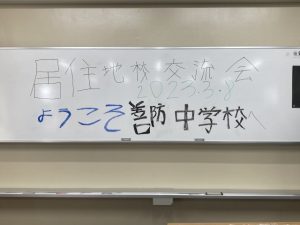 居住地校交流会
2023.3.8
ようこそ善防中学校へ